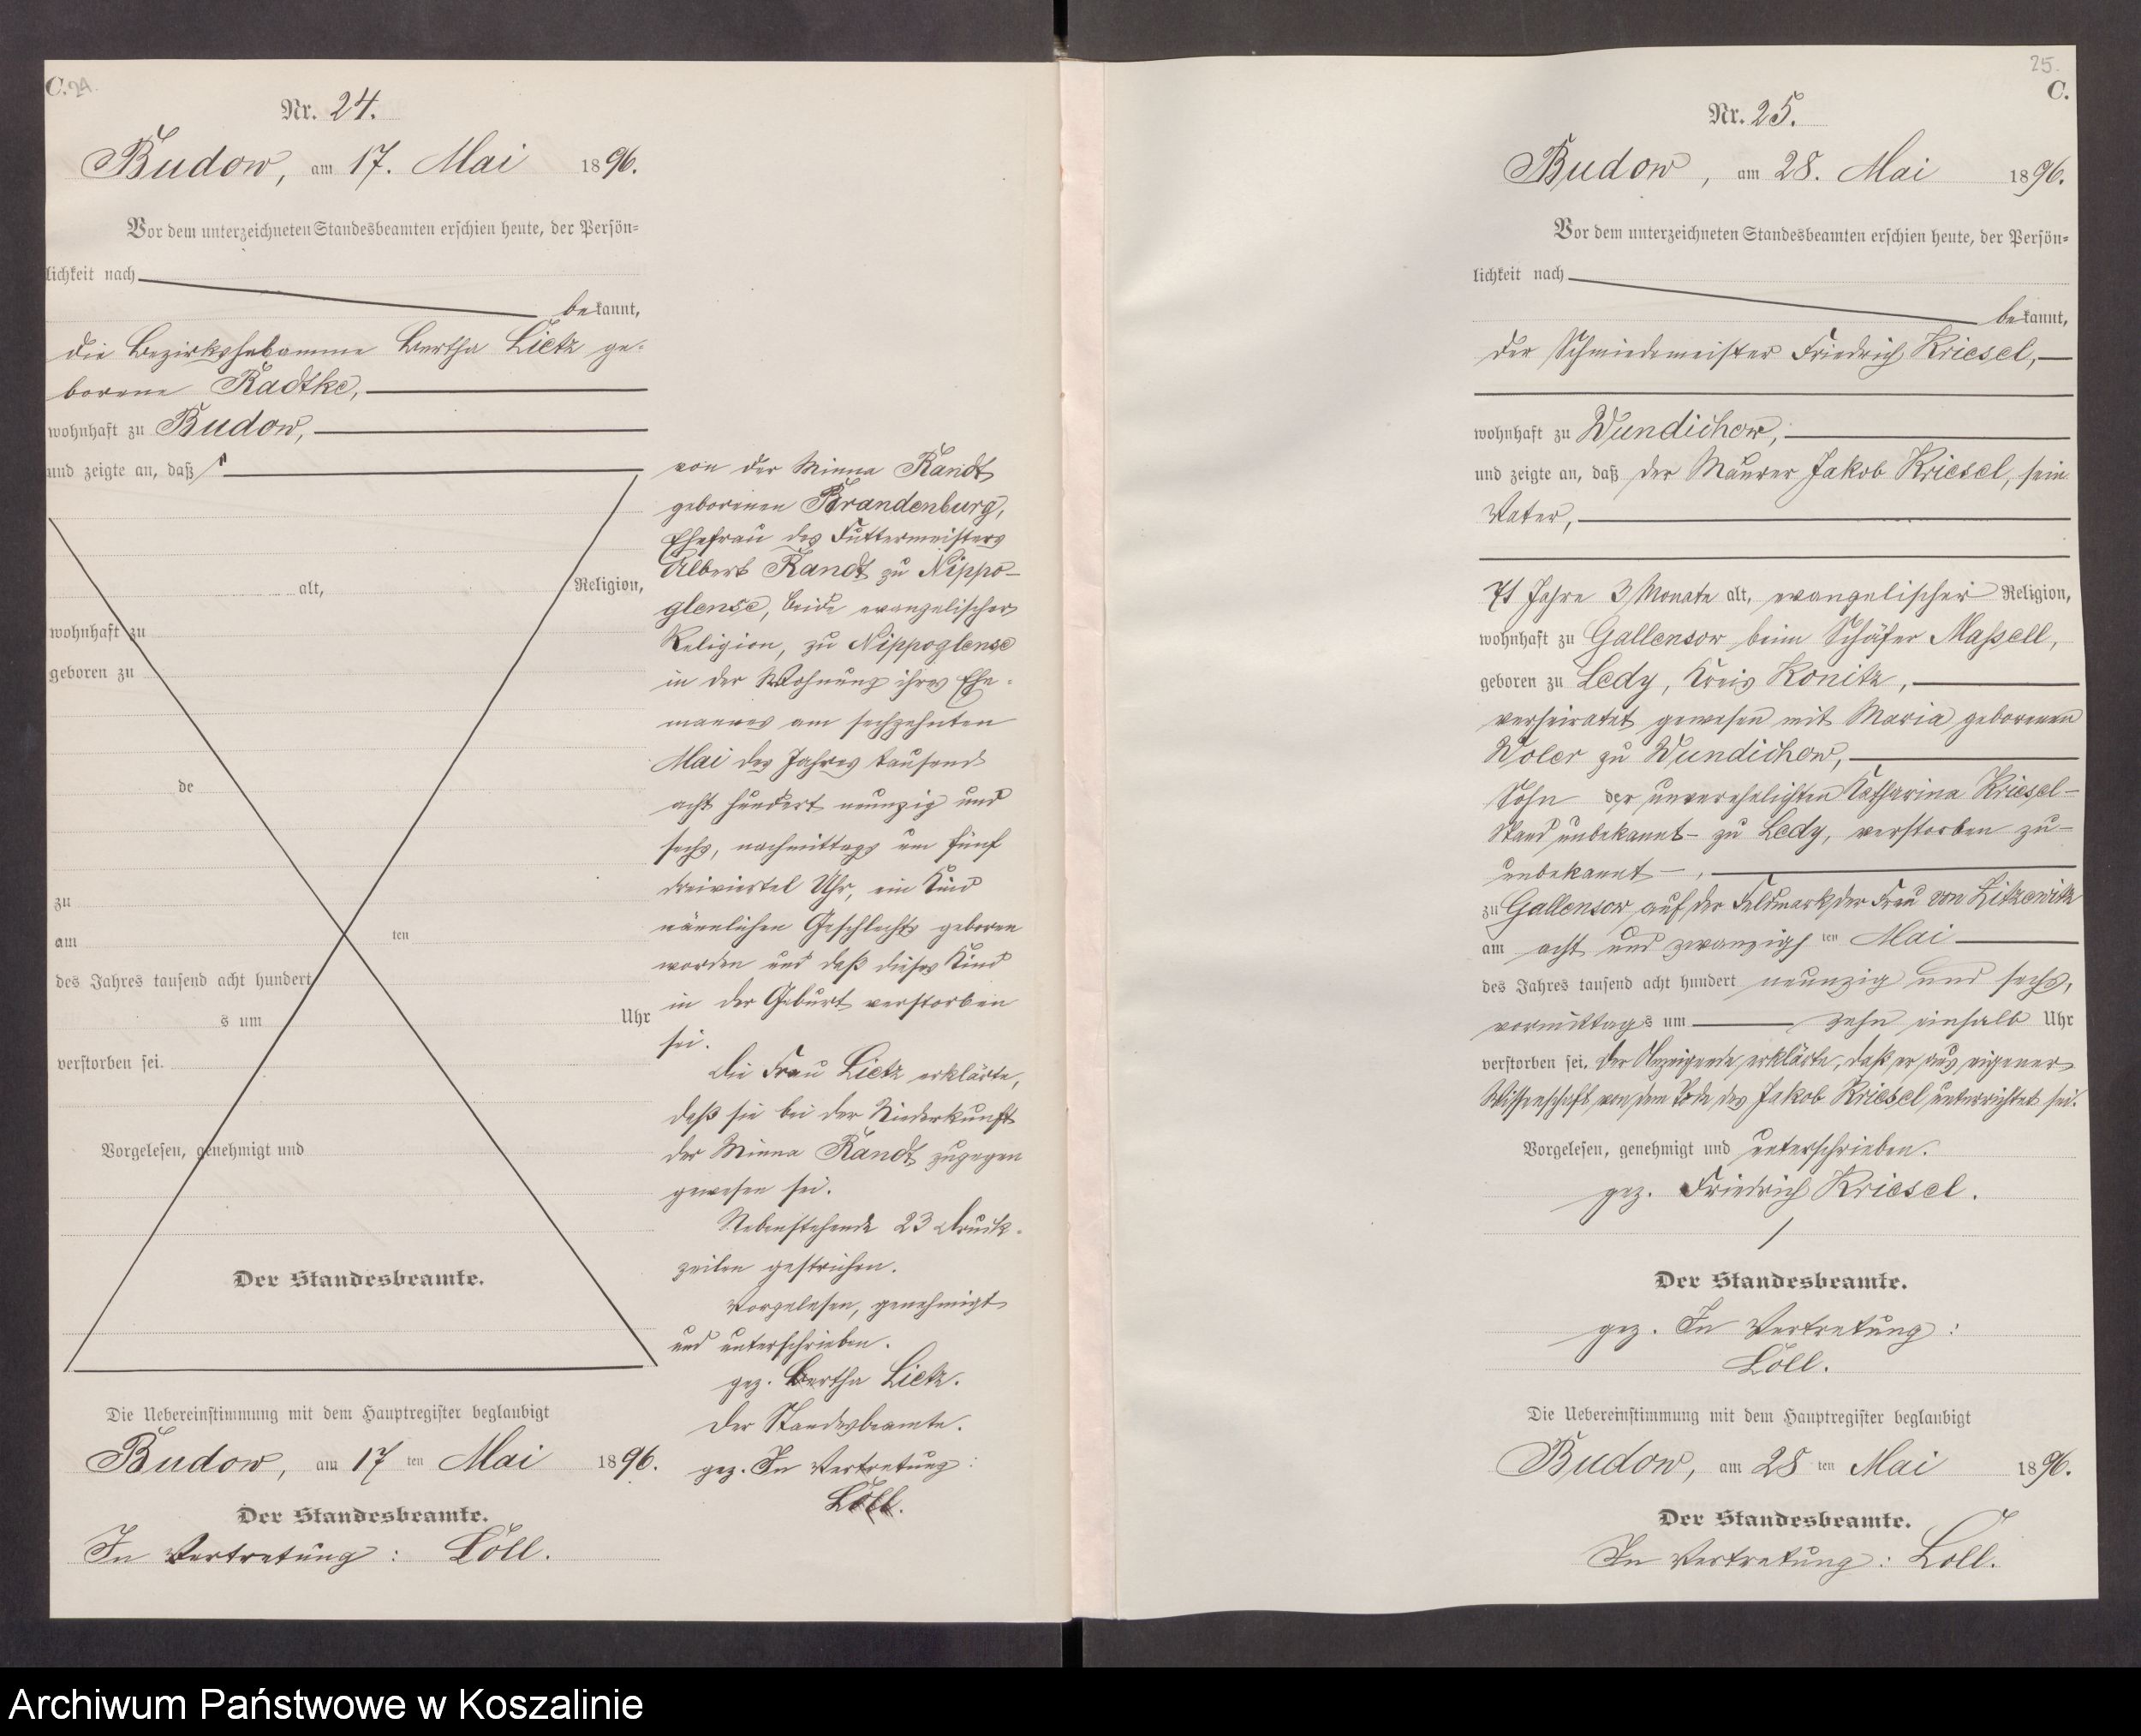 C. 24.
Nr. 24.
Budow, am 17. Mai 1896.
Vor dem unterzeichneten Standesbeamten erschien heute, der Persön=
lichkeit nach
bekannt,
die Bezirkshebamme Bertha Lietz ge=
borene Radtke,
wohnhaft zu Budow,
und zeigte an, daß
alt, Religion,
wohnhaft zu
geboren zu
de
zu
am ten
des Jahres tausend acht hundert
s um Uhr
verstorben sei.
Vorgelesen, genehmigt und
Der Standesbeamte.
Die Uebereinstimmung mit dem Hauptregister beglaubigt
Budow, am 17 ten Mai 1896.
Der Standesbeamte.
In Vertretung: Löll.
von der Minna Randt
geborenen Brandenburg,
Ehefrau des Futtermeisters
Albert Randt zu Nippo-
glense, beide evangelischer
Religion, zu Nippoglense
in der Wohnung ihres Ehe-
mannes am sechzehnten
Mai des Jahres tausend
acht hundert neunzig und
sechs, nachmittags um fünf
dreiviertel Uhr, ein Kind
männlichen Geschlechts geboren
worden und daß dieses Kind
in der Geburt verstorben
sei.
Die Frau Lietz erklärte,
daß sie bei der Niederkunft
der Minna Randt zugegen
gewesen sei.
Nebenstehende 23 Druck-
zeilen gestrichen.
Vorgelesen, genehmigt
und unterschrieben.
gez. Bertha Lietz.
Der Standesbeamte.
gez. In Vertretung:
Löll.
25.
C.
Nr. 25.
Budow, am 28. Mai 1896.
Vor dem unterzeichneten Standesbeamten erschien heute, der Persön=
lichkeit nach
bekannt,
der Schmiedemeister Friedrich Kriesel,
wohnhaft zu Wundichow,
und zeigte an, daß der Maurer Jakob Kriesel, sein
Vater,
71 Jahre 3 Monate alt, evangelischer Religion,
wohnhaft zu Gallensow beim Schäfer Maßell,
geboren zu Ledy, Kreis Konitz,
verheiratet gewesen mit Maria geborenen
Woler zu Wundichow,
Sohn der unverehelichten Katharina Kriesel-
Stand unbekannt- zu Ledy, verstorben zu-
unbekannt-,
zu Gallensow auf der Feldmark der Frau von Zitzewitz
am acht und zwanzigsten Mai
des Jahres tausend acht hundert neunzig und sechs,
vormittags um zehn einhalb Uhr
verstorben sei. Der Anzeigende erklärte, daß er aus eigener
Wissenschaft von dem Tode des Jakob Kriesel unterrichtet sei.
Vorgelesen, genehmigt und unterschrieben.
gez. Friedrich Kriesel.
Der Standesbeamte.
gez. In Vertretung:
Löll.
Die Uebereinstimmung mit dem Hauptregister beglaubigt
Budow, am 28 ten Mai 1896.
Der Standesbeamte.
In Vertretung: Löll.
Archiwum Państwowe w Koszalinie